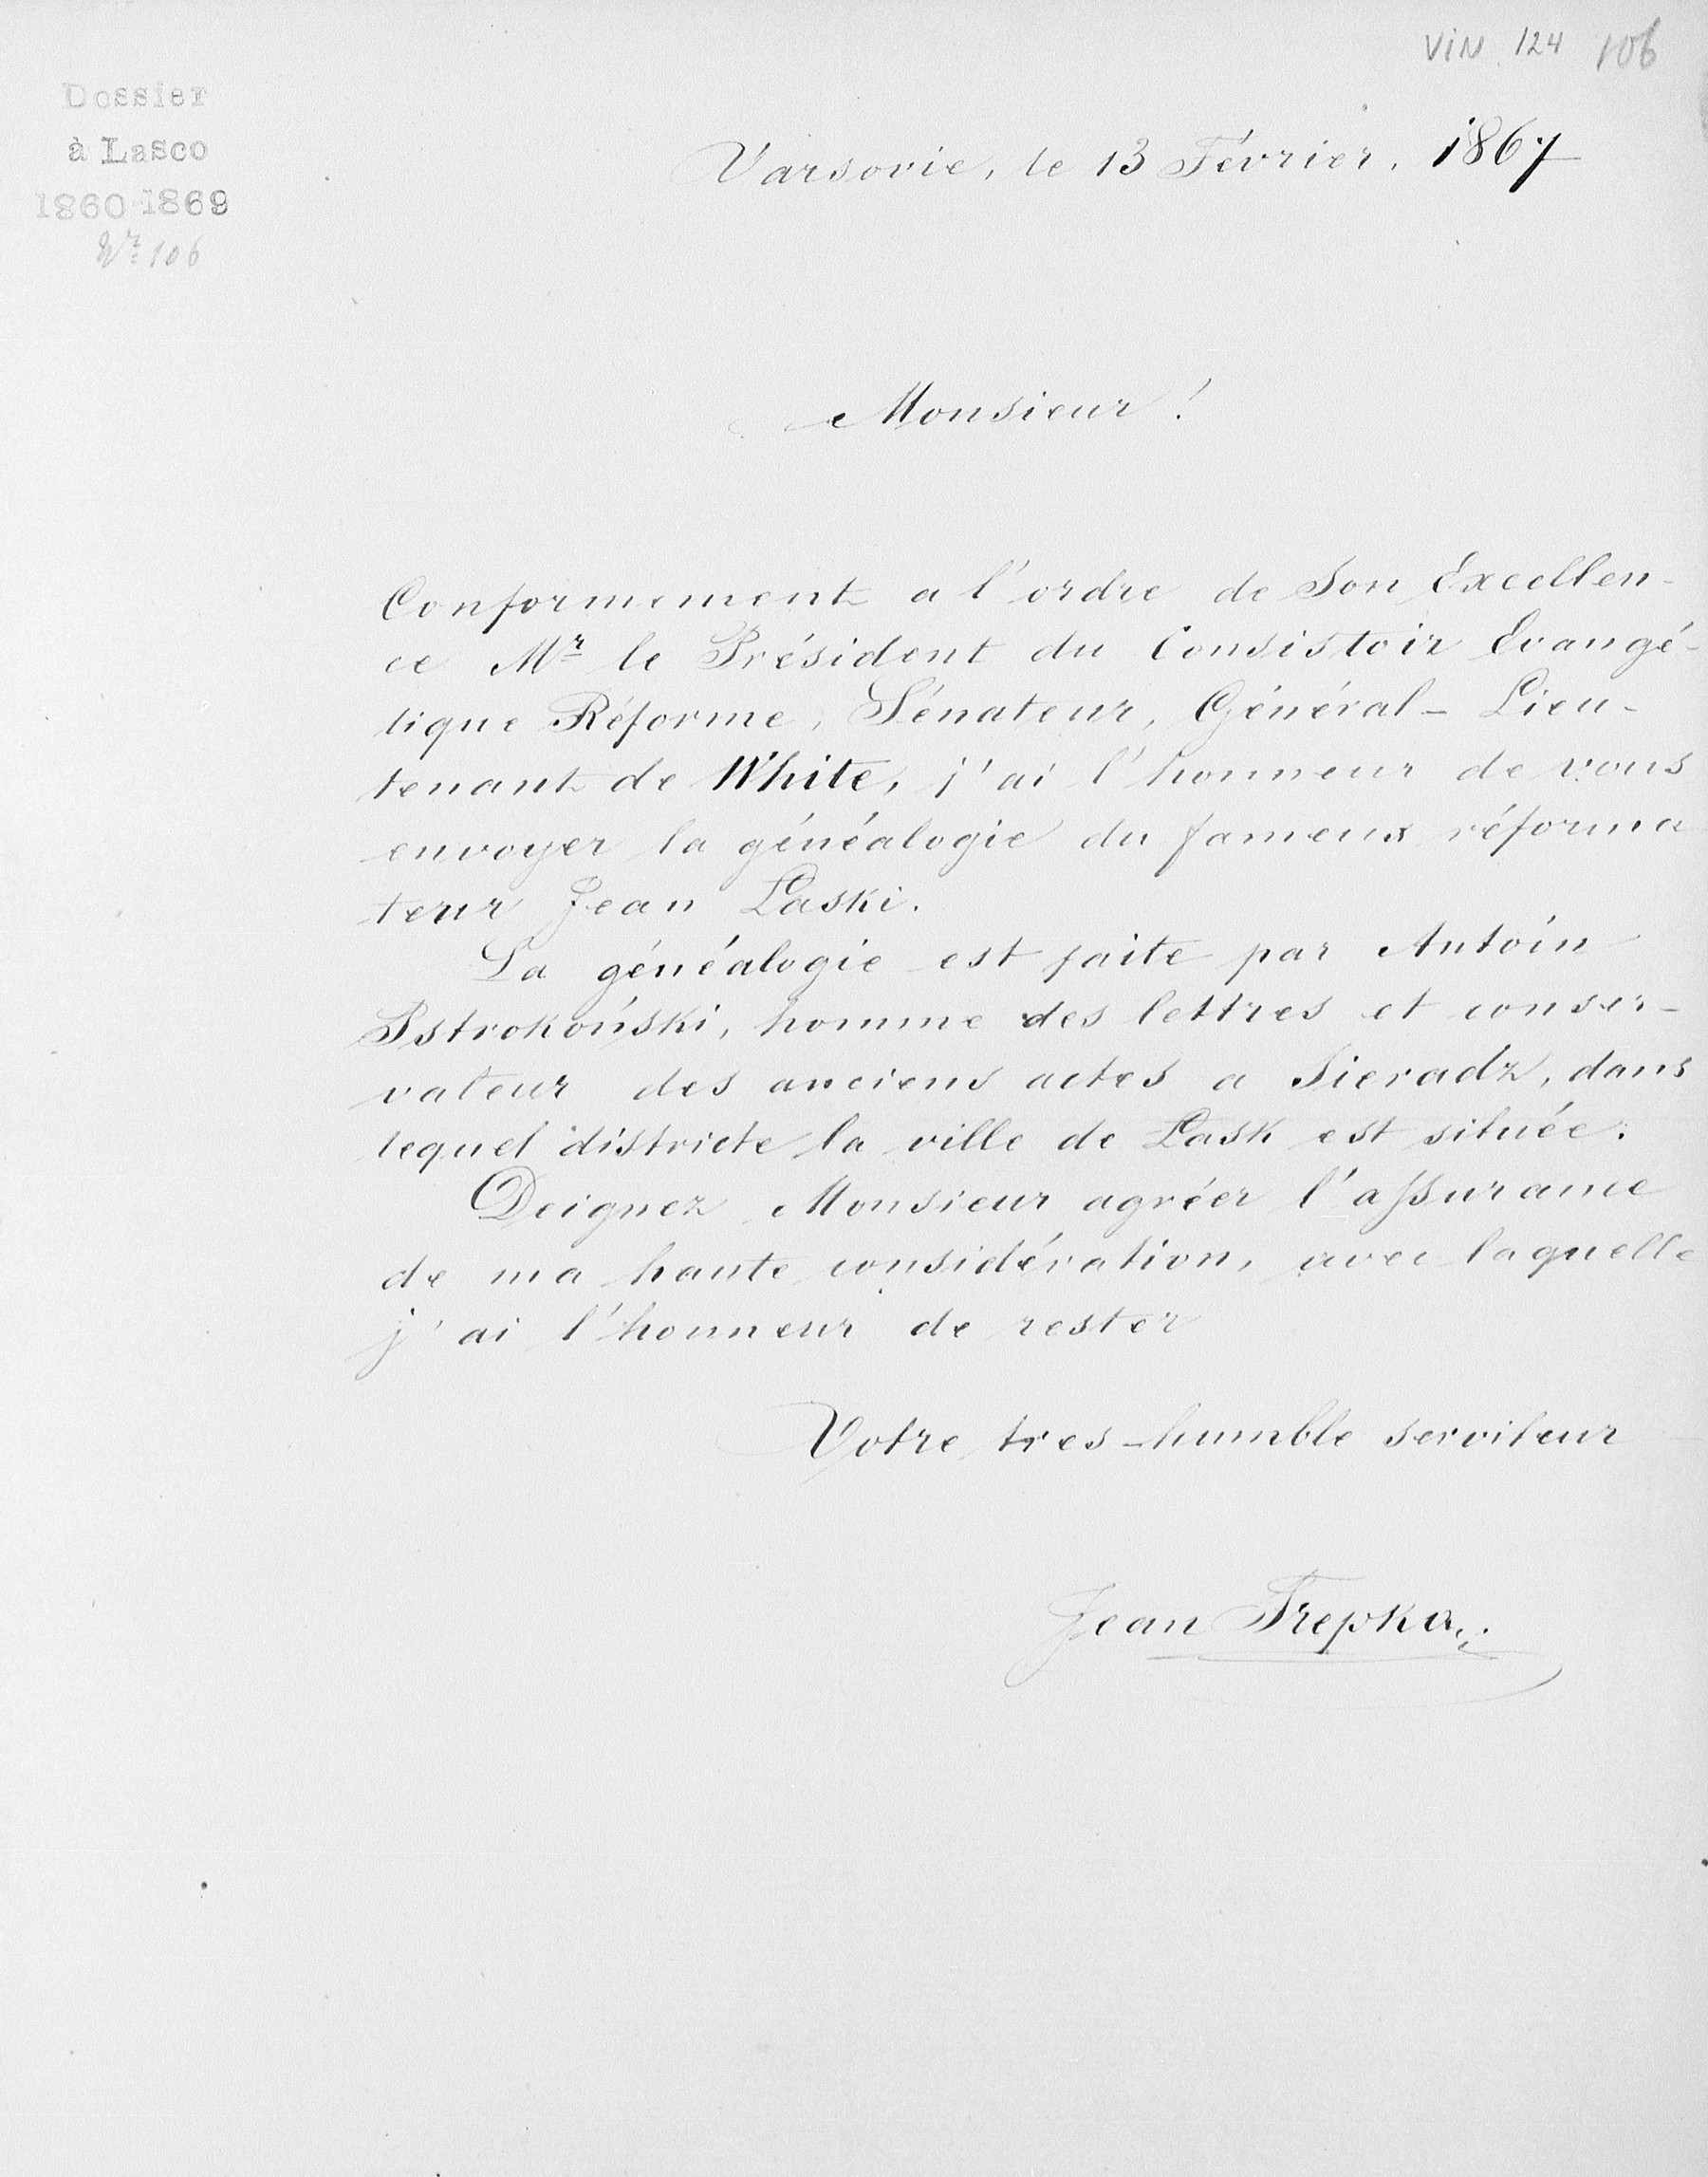 VIN 124 106
Dossier
à Lasco
1860-1869
Nr 106
Varsovie, le 13 Février, 1867
Monsieur!
Conformement a l'ordre de Son Excellen-
ce Mr le Président du Consistoir Evangé-
lique Réforme, Sénateur, Général-Lieu-
tenant de White, j'ai l'honneur de vous
envoyer la généalogie du fameux réforma
teur Jean Łaski.
La généalogie est faite par Antoin
Pstrokoński, homme des lettres et conser-
vateur des anciens actes a Sieradz, dans
lequel districte la ville de Łask est située.
Deignez Monsieur agréer l'assurance
de ma haute considération, avec laquelle
j'ai l'honneur de rester
Votre tres-humble serviteur
Jean Trepka